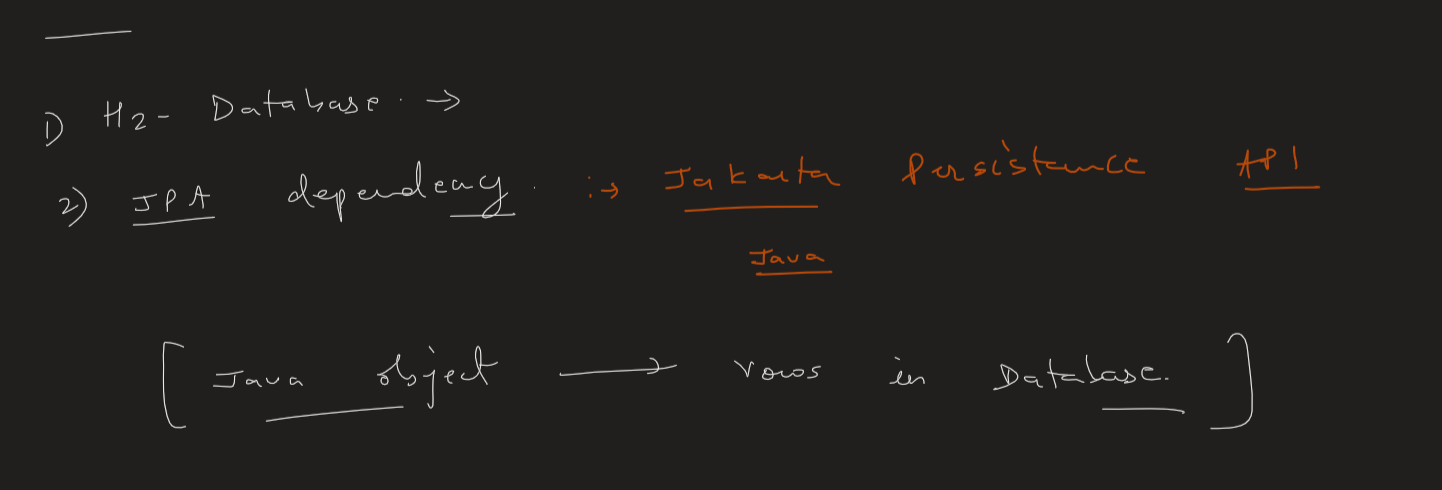 1) H2- Database. →
2) JPA dependency. :→ Jakarta Persistence API
Java
[ Java object → rows in Database. ]